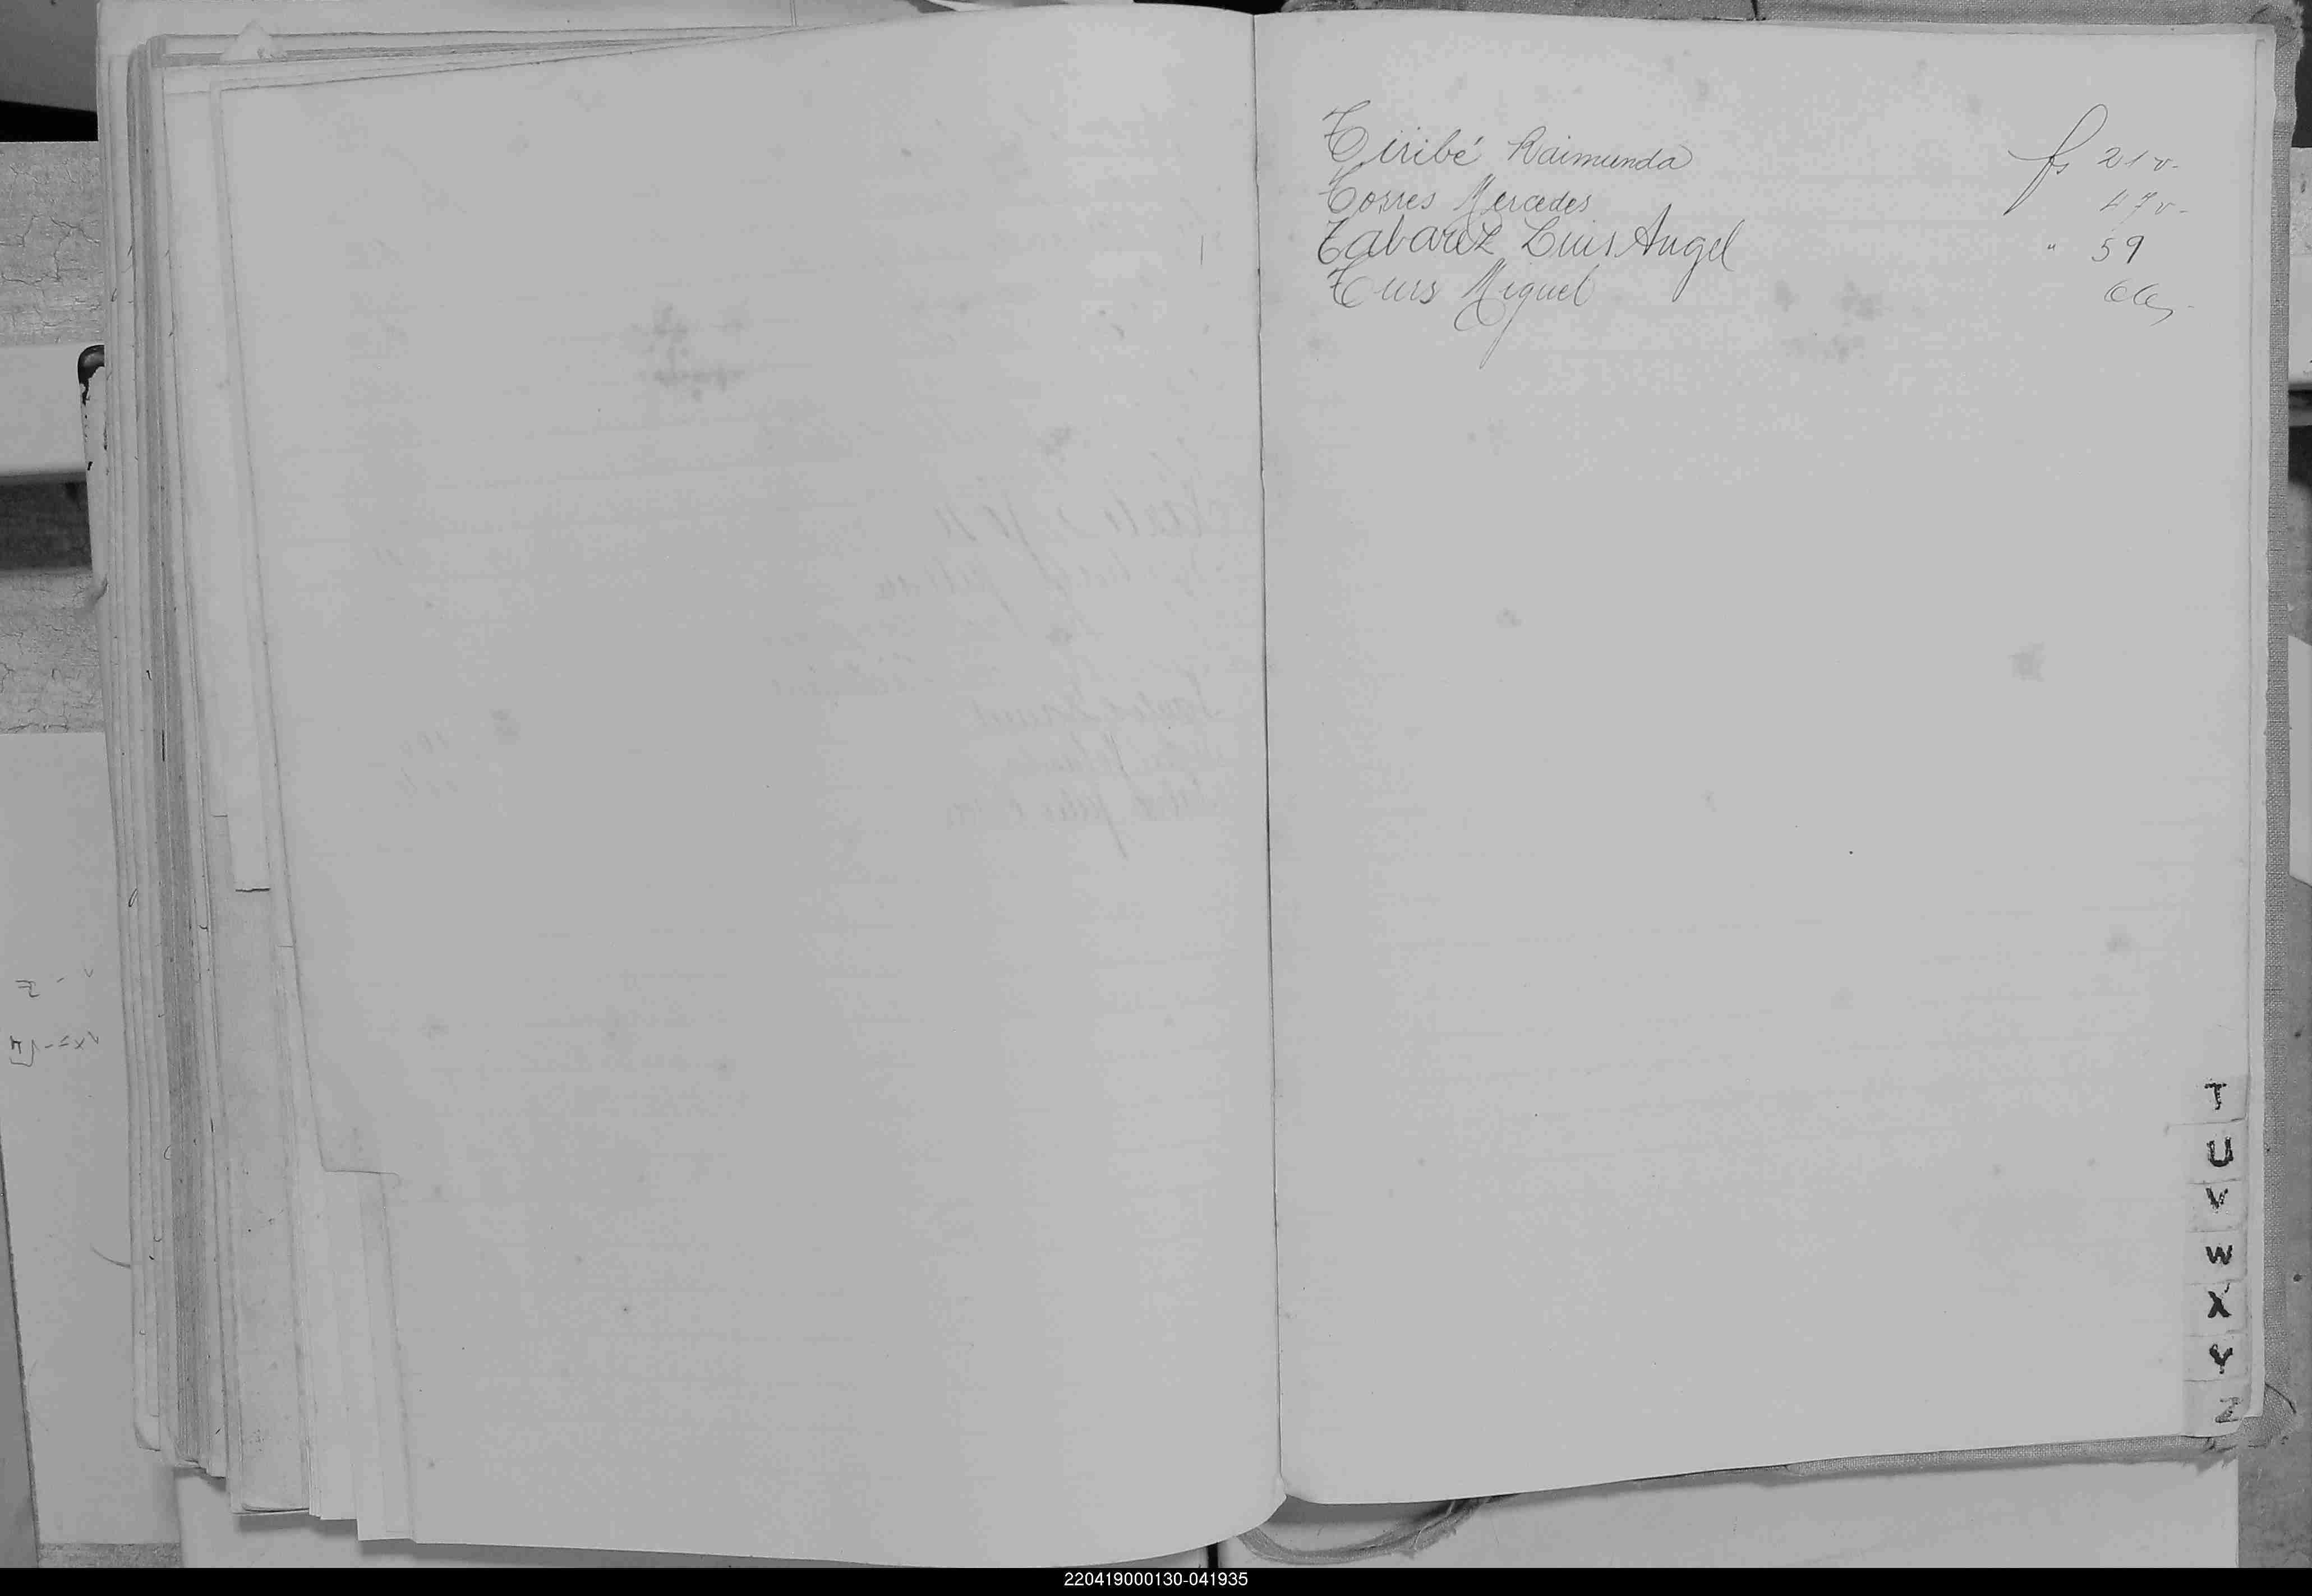 Tiribé Raimunda fs 21 v-
Torres Mercedes 47 v-
Tabarez Luis Angel " 59
Turs Miguel
T
U
V
W
X
Y
Z
220419000130-041935